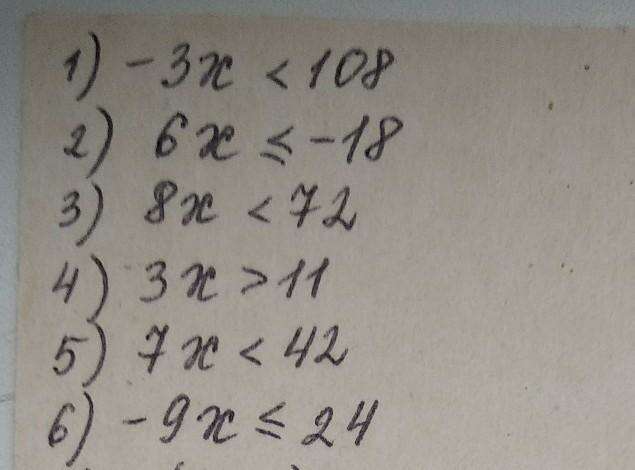 1) -3x < 108
2) 6x ≤ -18
3) 8x < 72
4) 3x > 11
5) 7x < 42
6) -9x ≤ 24